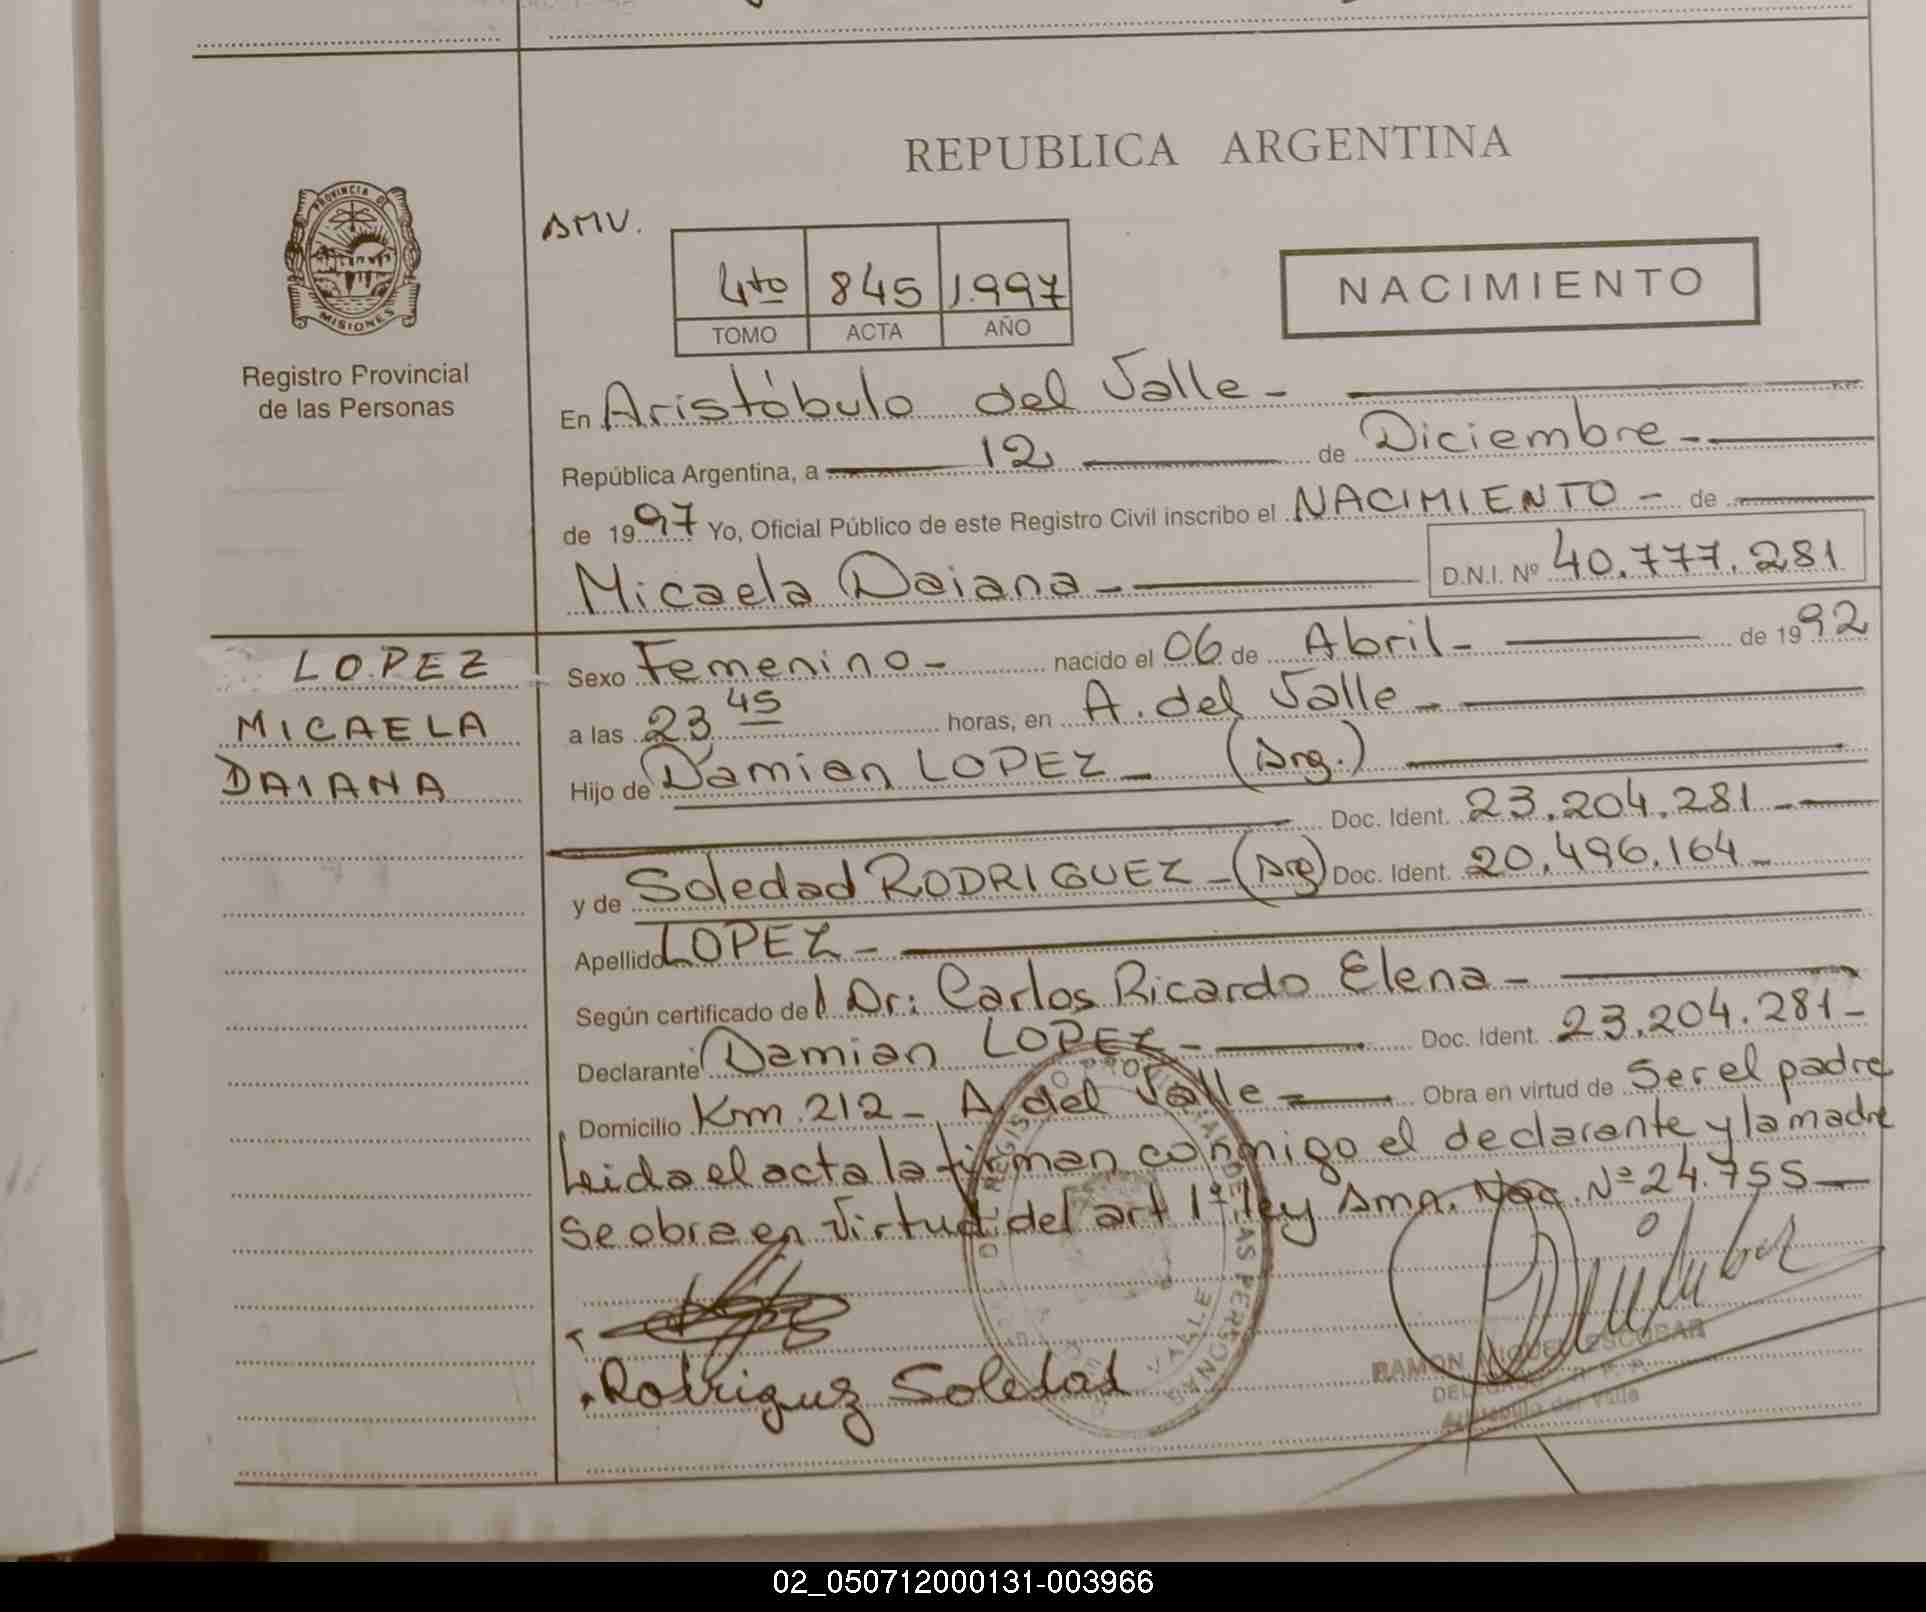 REPUBLICA ARGENTINA
PROVINCIA DE
MISIONES
Registro Provincial
de las Personas
AMV.
4to 845 1.997
TOMO ACTA AÑO
NACIMIENTO
En Aristóbulo del Valle -
República Argentina, a 12 de Diciembre -
de 1997 Yo, Oficial Público de este Registro Civil inscribo el NACIMIENTO - de
Micaela Daiana - D.N.I. Nº 40.777.281
LOPEZ
MICAELA
DAIANA
Sexo Femenino - nacido el 06 de Abril - de 1992
a las 23 45 horas, en A. del Valle -
Hijo de Damian LOPEZ - (Arg.)
Doc. Ident. 23.204.281 -
y de Soledad RODRIGUEZ - (Arg) Doc. Ident. 20.496.164 -
Apellido LOPEZ -
Según certificado del Dr: Carlos Ricardo Elena -
Declarante Damian LOPEZ - Doc. Ident. 23.204.281 -
Domicilio Km 212 - A. del Valle - Obra en virtud de Ser el padre
Leida el acta la firman conmigo el declarante y la madre
se obra en virtud del art 1º ley Amn. Nac. Nº 24.755 -
Rodriguz Soledad
RAMON MIQUEL ESCOBAR
DELEGADO R. P. P.
Aristobulo del Valle
02_050712000131-003966